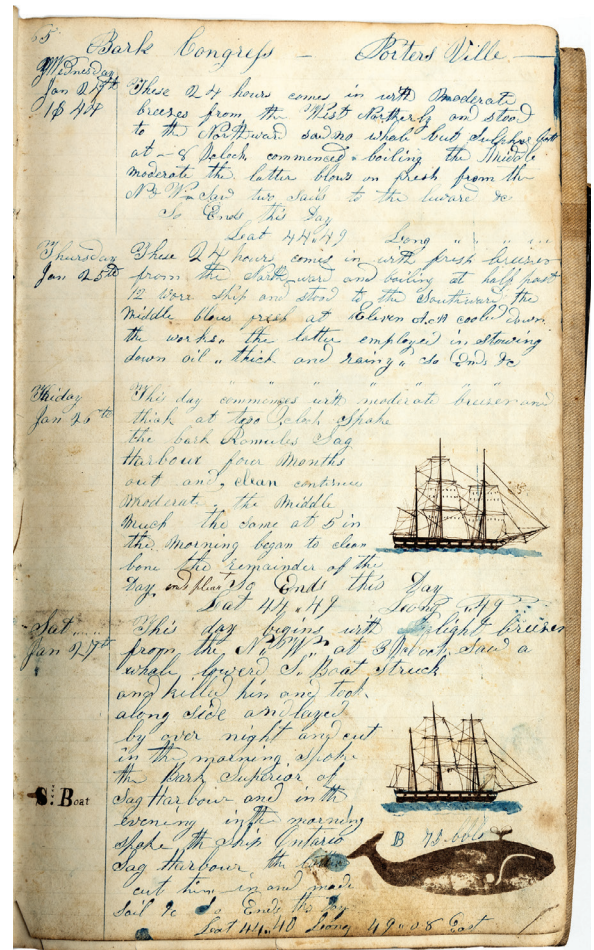 65 Bark Congress — Porters Ville —
Wednesday
Jan 24th
1844
These 24 hours comes in with moderate
breezes from the West Northerly and stood
to the Northward saw no whale but Sulphur
at 8 Oclock commenced boiling the Middle
moderate the latter blows on fresh from the
N & W saw two sails to the leward &c
So Ends this Day
Lat 44..49 Long " " " "
Thursday
Jan 25th
These 24 hours comes in with fresh breezes
from the North ward and boiling at half past
12 wore ship and stood to the Southward the
Middle blows fresh at Eleven cooled down
the works " the latter employed in stowing
down oil " thick and rainy " So Ends &c
Friday
Jan 26th
This day commences with moderate breezes and
thick at two Oclock Spoke
the bark Romules Sag
Harbour four Months
out and clean continue
moderate the Middle
much the same at 5 in
the Morning began to clean
bone the remainder of the
Day So Ends this Day
Lat 44..49 Long 49
Sat
Jan 27th
This day begins with light breezes
from the N W at 3 Saw a
whale lowerd S. Boat Struck
and killed him and took
along side and layed
by over night and cut
in the morning Spoke
the Bark Superior of
S: Boat
Sag Harbour and in the
evening in the morning
spoke the ship Ontario
B
Sag Harbour the
cut him in and made
sail &c So Ends the Day
Lat 44..40 Long 49..08 East